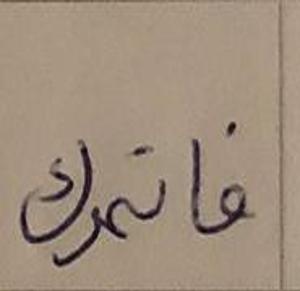 فاتمرك